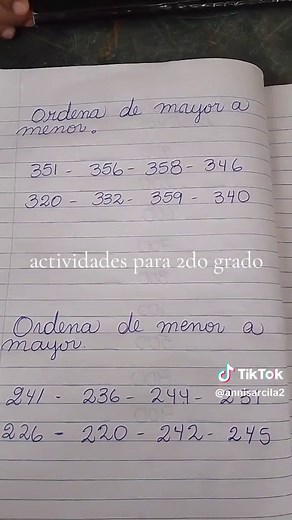 Ordena de mayor a
menor.
351 - 356 - 358 - 346
320 - 332 - 359 - 340
actividades para 2do grado
Ordena de menor a
mayor.
TikTok
@annisarcila2
241 - 236 - 244 - 231
226 - 220 - 242 - 245